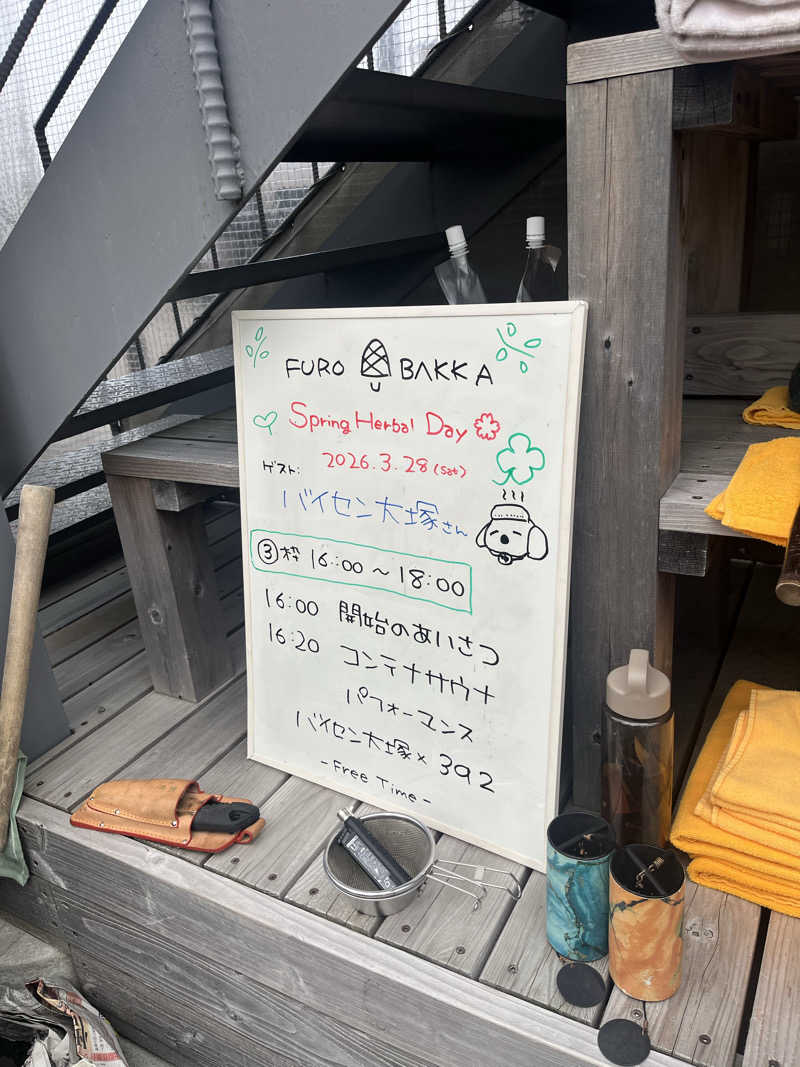 FURO BAKKA
Spring Herbal Day
2026.3.28(sat)
ゲスト:
バイセン大塚さん
③枠 16:00〜18:00
16:00 開始のあいさつ
16:20 コンテナサウナ
パフォーマンス
バイセン大塚×392
-Free Time-